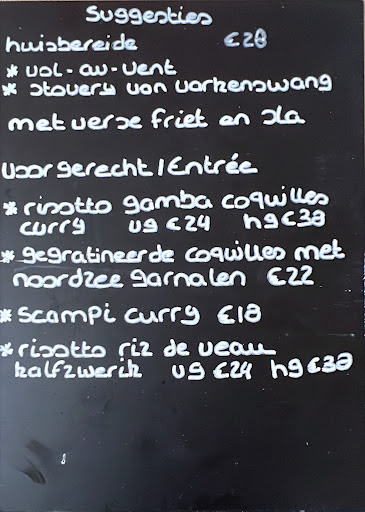 Suggesties
huisbereide €28
* vol-au-vent
* stovery van varkenswang
met verse friet en sla
Voorgerecht/Entrée
* risotto gamba coquilles
curry vg €24 hg €38
* gegratineerde coquilles met
noordzee garnalen €22
* Scampi curry €18
* risotto riz de veau
kalfzwerik vg €24 hg €38